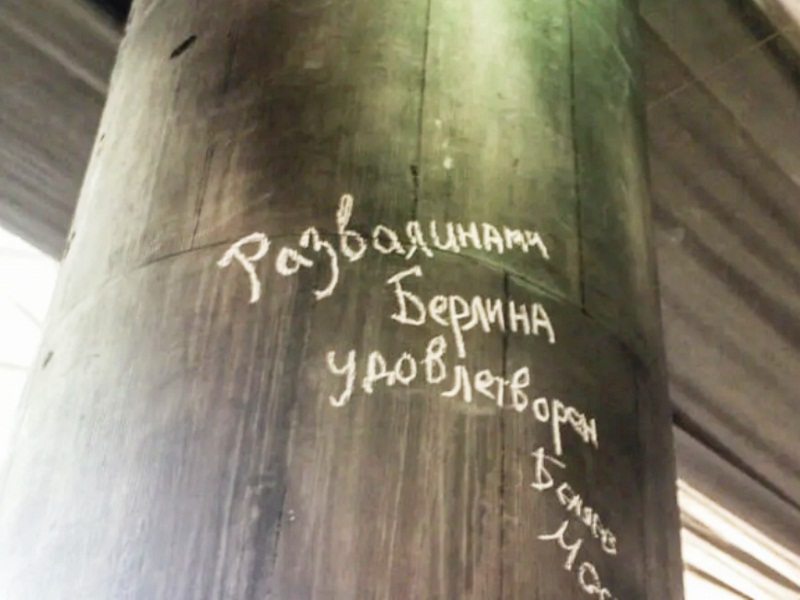 Развалинами
Берлина
удовлетворен
Беляев